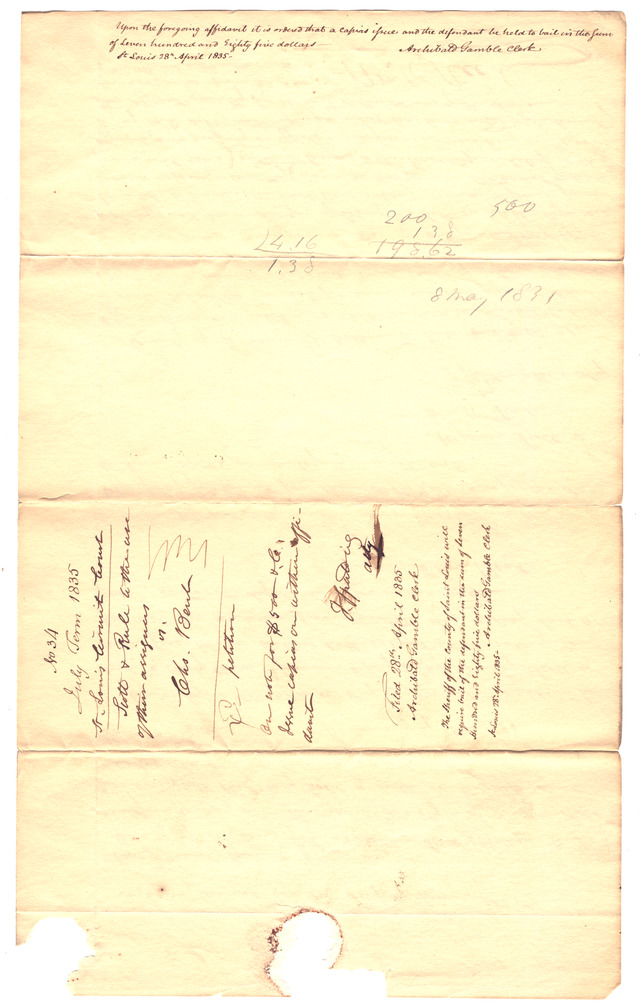 Upon the foregoing affidavit it is ordered that a capias issue and the defendant be held to bail in the sum
of Seven hundred and Eighty five dollars
Archibald Gamble Clerk
St Louis 28th April 1835-
500
200
138
198.62
24.16
1.38
8 May 1831
No 34
July Term 1835
St. Louis Circuit Court
& Rule to the use
of their assignees
vs.
Chs. Bent
petition
on note for $500 &c.
Issue capias on within affi-
davit
Spalding
atty
Filed 28th April 1835
Archibald Gamble Clerk
The Sheriff of the County of Saint Louis will
require bail of the defendant in the sum of Seven
hundred and Eighty five dollars
Archibald Gamble Clerk
St Louis 28th April 1835-